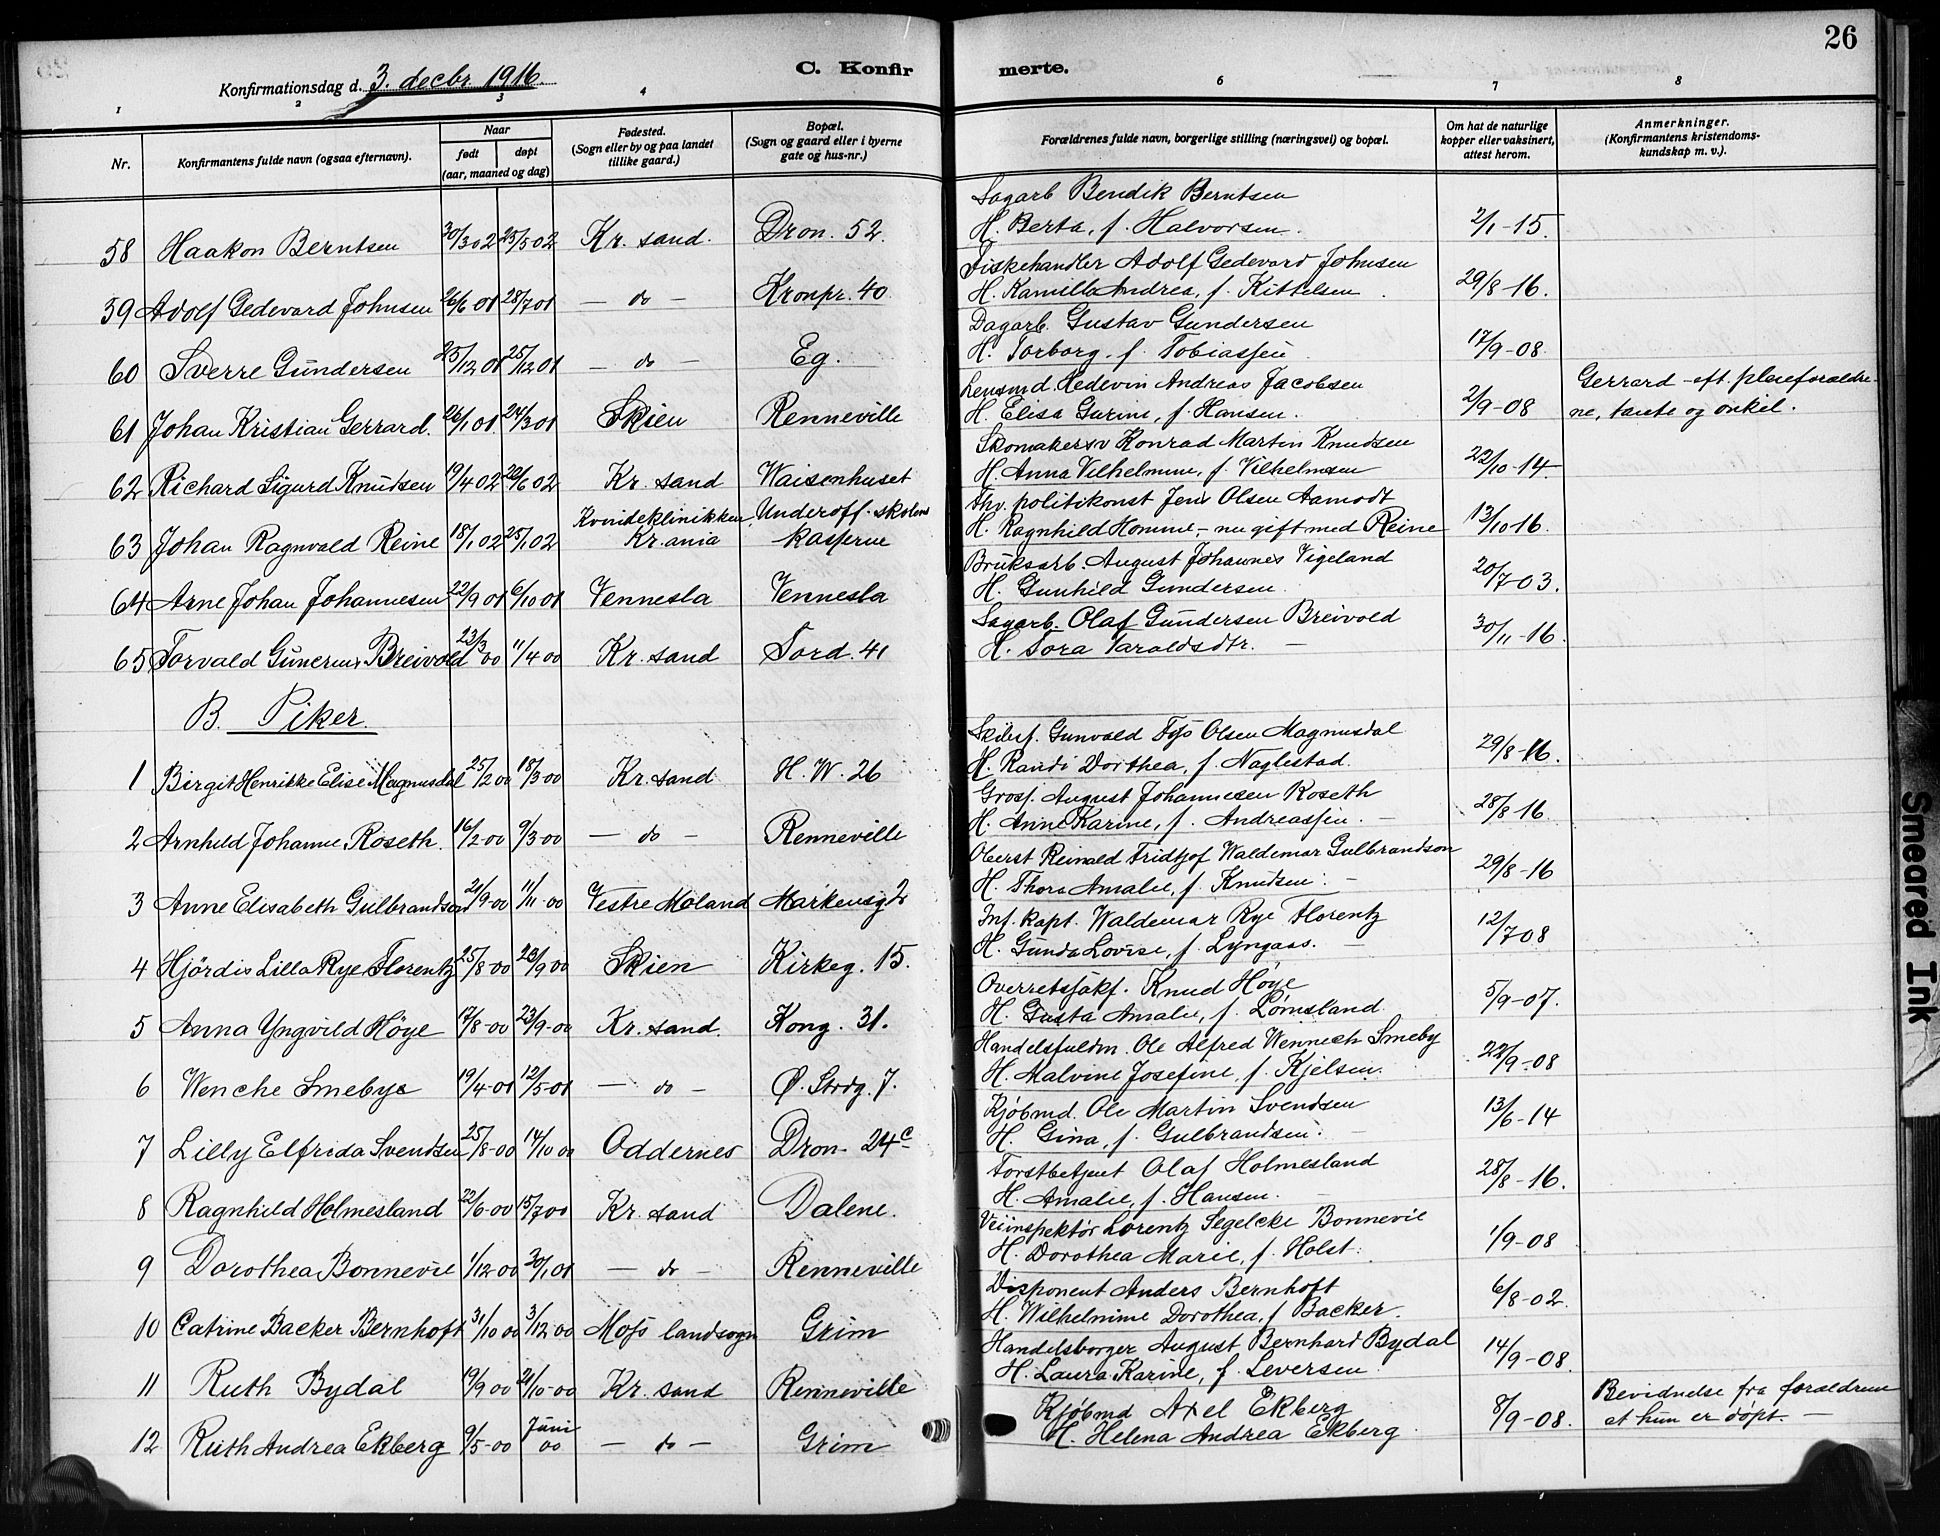 26
Konfirmationsdag d. 3. decbr. 1916.
C. Konfirmerte.
1 2 3 4 6 7 8
Nr.
Konfirmantens fulde navn (ogsaa efternavn).
Naar
født døpt
(aar, maaned og dag)
Fødested.
(Sogn eller by og paa landet
tillike gaard.)
Bopæl.
(Sogn og gaard eller i byerne
gate og hus-nr.)
Forældrenes fulde navn, borgerlige stilling (næringsvei) og bopæl.
Om hat de naturlige
kopper eller vaksinert,
attest herom.
Anmerkninger.
(Konfirmantens kristendoms-
kundskap m. v.).
Sagarb Bendik Berntsen
58 Haakon Berntsen 30/3 02 25/5 02 Kr. sand. Dron. 52. H. Berta, f. Halvorsen. 2/1-15.
Fiskehandler Adolf Gedevard Johnsen
59 Adolf Gedevard Johnsen 26/6 01 28/7 01 — do — Kronpr. 40. H. Kamilla Andrea, f. Kittelsen. 29/8-16.
Dagarb. Gustav Gundersen
60 Sverre Gundersen 25/12 01 25/12 01 — do — Eg. H. Torborg. f. Tobiassen 17/9-08.
Lensmd. Hedevin Andreas Jacobsen Gerrard - eft. pleieforældre-
61 Johan Kristian Gerrard. 26/1 01. 24/3 01 Skien Renneville H. Elisa Gurine, f. Hansen. 2/9-08 ne, tante og onkel.
Skomakersv Konrad Martin Knudsen
62 Richard Sigurd Knudsen 19/4 02 20/6 02 Kr. sand Waisenhuset H. Anna Vilhelmine, f. Vilhelmsen 22/10-14.
Kvindeklinikken Underoff. skolens Fhv. politikonst Jens Olsen Aamodt
63 Johan Ragnvald Reine 18/1 02 25/1 02 Kr.ania kaserne H. Ragnhild Homme - nu gift med Reine 13/10 16.
Bruksarb. August Johannes Vigeland
64 Arne Johan Johannesen 22/9 01 6/10 01 Vennesla Vennesla H. Gunhild Gundersen. 20/7 03.
Sagarb. Olaf Gundersen Breivold
65 Torvald Gunerius Breivold 23/3 00 11/4 00 Kr. sand Tord. 41 H. Tora Taraldsdtr. — 30/11-16.
B. Piker.
Skibsf. Gunvald Tys Olsen Magnusdal
1 Birgit Henrikke Elise Magnusdal 25/2 00 18/3 00 Kr. sand H. W. 26 H. Randi Dorthea, f. Naglestad. 29/8-16.
Gross. August Johannesen Roseth
2 Arnhild Johanne Roseth. 16/2-00 9/3-00 — do — Renneville H. Anne Karine, f. Andreassen. — 28/8-16
Oberst Reinald Fridtjof Waldemar Gulbrandson
3 Anne Elisabeth Gulbrandson 20/9-00 11/11-00 Vestre Moland Markensg 2 H. Thora Amalie, f. Knudsen. — 29/8-16
Inf. kapt. Waldemar Rye Florentz
4 Hjördis Lilla Rye Florentz 25/8-00 23/9 00 Skien Kirkeg. 15. H. Gunda Lovise, f. Lyngaas. — 12/7 08
Overretssakf. Knud Høye
5 Anna Yngvild Høye 17/8-00 23/9-00 Kr. sand. Kong. 31. H. Gusta Amalie, f. Lømsland. 5/9-07.
Handelsfuldm. Ole Alfred Wennech Smeby
6 Wenche Smebye 19/4-01 12/5-01 — do — Ø. Strdg. 7. H. Malvine Josefine, f. Kjelsen. 22/9-08
Kjöbmd. Ole Martin Svendsen
7 Lilly Elfrida Svendsen 25/8-00 14/10 00 Oddernes Dron- 24c H. Gina, f. Gulbrandsen. — 13/6-14
Forstbetjent Olaf Holmesland
8 Ragnhild Holmesland 22/6-00 15/7 00 Kr. sand Dalene. H. Amalie, f. Hansen. — 28/8-16.
Veiinspektör Lorentz Segelcke Bonnevie
9 Dorothea Bonnevie 1/12-00 20/1 01 — do — Renneville H. Dorothea Marie, f. Holst. 1/9-08
Disponent Anders Bernhoft
10 Catrine Backer Bernhoft 31/10 00 3/12 00 Moss landsogn Grim H. Wilhelmine Dorothea, f Backer. 6/8-02.
Handelsborger August Bernhard Bydal
11 Ruth Bydal 19/9 00 21/10-00 Kr. sand Renneville H. Laura Karine, f. Seversen 14/9-08.
Kjöbmd Axel Ekberg Bevidnelse fra forældrene
12 Ruth Andrea Ekberg 9/5-00 Juni 00 — do — Grim H. Helena Andrea Ekberg 8/9-08. at hun er döpt. —
Smeared Ink